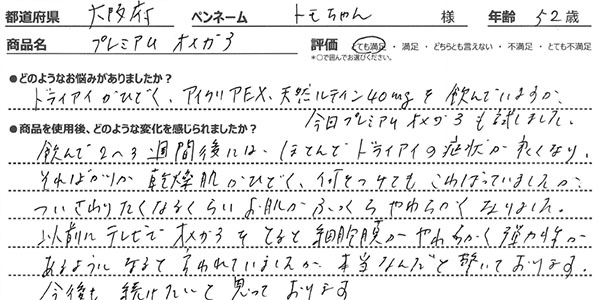 都道府県 大阪府 ペンネーム トモちゃん 様 年齢 52歳
商品名 プレミアムオメガ3 評価 とても満足・満足・どちらとも言えない・不満足・とても不満足
*○で囲んでお選びください。
●どのようなお悩みがありましたか?
ドライアイがひどく、アイクリアEX、天然ルテイン40mgを飲んでいますが、
今回プレミアムオメガ3も試しました。
●商品を使用後、どのような変化を感じられましたか?
飲んで2~3週間後には、ほとんどドライアイの症状が良くなり、
そればかりか乾燥肌がひどく、何をつけてもこわばっていましたが、
ついさわりたくなるくらいお肌がふっくらやわらかくなりました。
以前にテレビでオメガ3をとると細胞膜がやわらかく弾力性が
あるようになると言われていましたが、本当なんだと驚いております。
今後も続けたいと思っております